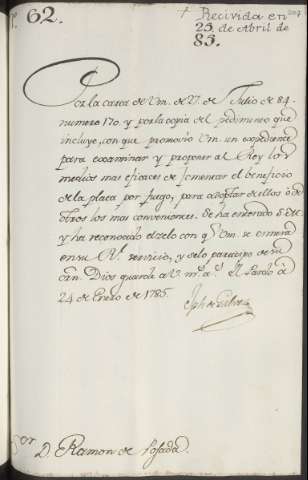 62.
+ Recivida en
25 de Abril de
85.
Por la carta de Vm. de 27. de Julio de 84.
numero 170. y por la copia del pedimento que
incluye, con que promovió Vm. un expediente
para examinar y proponer al Rey los
medios mas eficaces de fomentar el beneficio
de la plata por fuego, para adoptar de ellos ò de
otros los mas convenientes. Se ha enterado S.M.
y ha reconocido el zelo con q.e Vm. se esmera
en su R.l servicio, y de lo participo de su
orn. Dios guarde à V. m.s a.s El Pardo à
24 de Enero de 1785.
Jph de Galvez
S.or
D. Ramon de Posada.